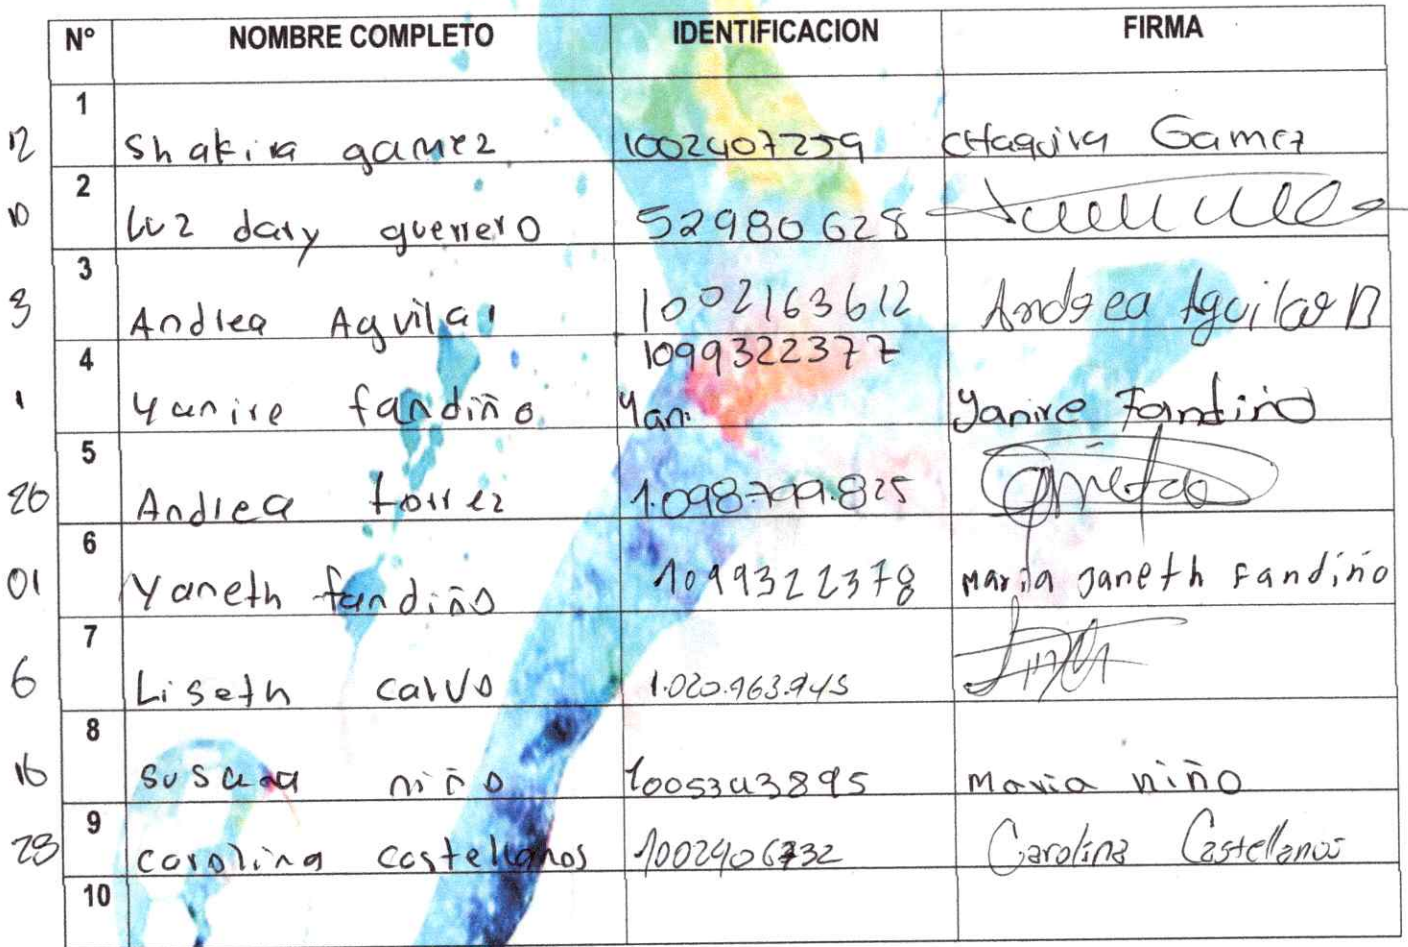 N° NOMBRE COMPLETO IDENTIFICACION FIRMA
1
12 Shakira gamez 1002407259 CHaquira Gamez
2
10 luz dary guerrero 52980628
3
3 Andrea Aguilar 1002163612 Andrea Aguilar B
4 1099322377
1 Yanire fandiño Yan Yanire Fandiño
5
26 Andrea torrez 1.098799.825
6
01 Yaneth fandiño 1099322378 Maria Janeth Fandiño
7
6 Liseth calvo 1.020.963.945
8
16 Susana niño 1005343895 Maria niño
9
28 carolina castellanos 1002406732 Carolina Castellanos
10